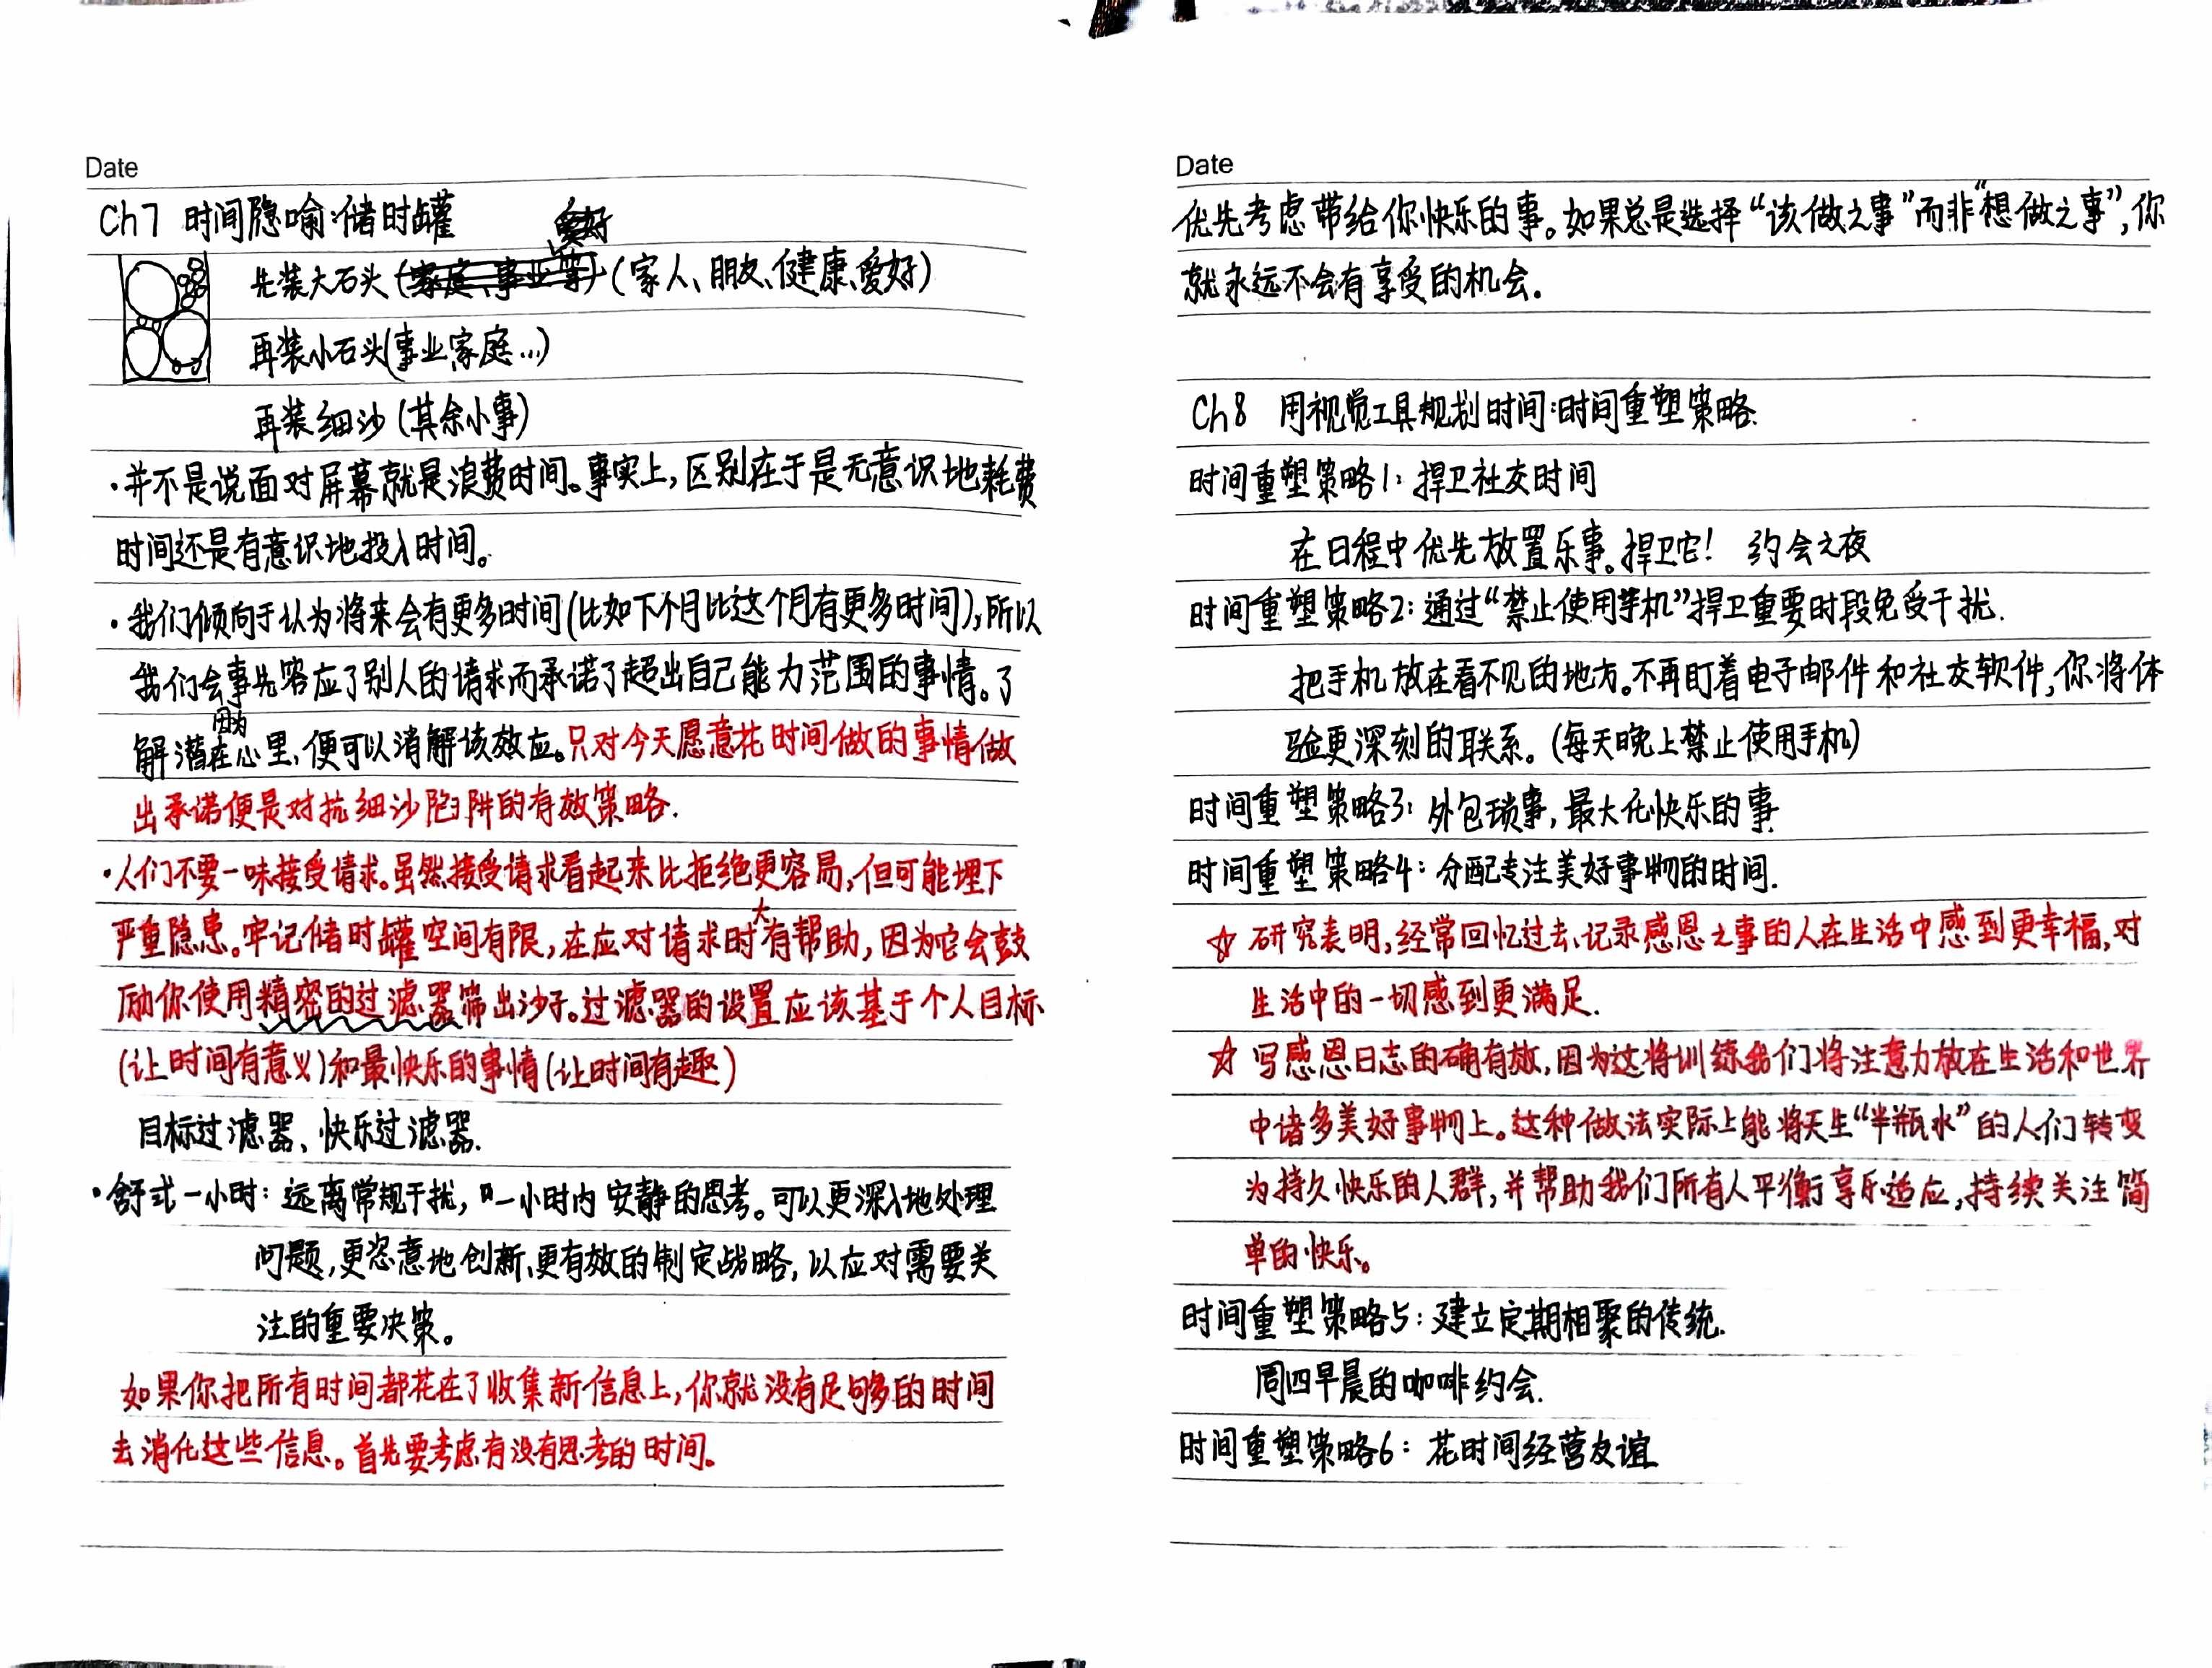 Date
Ch7 时间隐喻:储时罐
爱好
先装大石头(家庭、事业等)(家人、朋友、健康、爱好)
再装小石头(事业,家庭…)
再装细沙(其余小事)
·并不是说面对屏幕就是浪费时间。事实上,区别在于是无意识地耗费
时间还是有意识地投入时间。
·我们倾向于认为将来会有更多时间(比如下个月比这个月有更多时间),所以
我们会事先答应了别人的请求而承诺了超出自己能力范围的事情。了
因为
解潜在心里,便可以消解该效应。只对今天愿意花时间做的事情做
出承诺便是对抗细沙陷阱的有效策略.
·人们不要一味接受请求。虽然接受请求看起来比拒绝更容易,但可能埋下
严重隐患。牢记储时罐空间有限,在应对请求时大有帮助,因为它会鼓
励你使用精密的过滤器筛出沙子。过滤器的设置应该基于个人目标
(让时间有意义)和最快乐的事情(让时间有趣)
目标过滤器、快乐过滤器.
·舒式一小时:远离常规干扰,一小时内安静的思考。可以更深入地处理
问题,更恣意地创新,更有效的制定战略,以应对需要关
注的重要决策。
如果你把所有时间都花在了收集新信息上,你就没有足够多的时间
去消化这些信息。首先要考虑有没有思考的时间。
Date
优先考虑带给你快乐的事。如果总是选择“该做之事”而非“想做之事”,你
就永远不会有享受的机会.
Ch8 用视觉工具规划时间:时间重塑策略.
时间重塑策略1:捍卫社交时间
在日程中优先放置乐事。捍卫它! 约会之夜
时间重塑策略2:通过“禁止使用手机”捍卫重要时段免受干扰.
把手机放在看不见的地方。不再盯着电子邮件和社交软件,你将体
验更深刻的联系。(每天晚上禁止使用手机)
时间重塑策略3:外包琐事,最大化快乐的事
时间重塑策略4:分配专注美好事物的时间.
☆ 研究表明,经常回忆过去、记录感恩之事的人在生活中感到更幸福,对
生活中的一切感到更满足.
☆ 写感恩日志的确有效,因为这将训练我们将注意力放在生活和世界
中诸多美好事物上。这种做法实际上能将天生“半瓶水”的人们转变
为持久快乐的人群,并帮助我们所有人平衡享乐适应,持续关注简
单的快乐。
时间重塑策略5:建立定期相聚的传统.
周四早晨的咖啡约会.
时间重塑策略6:花时间经营友谊